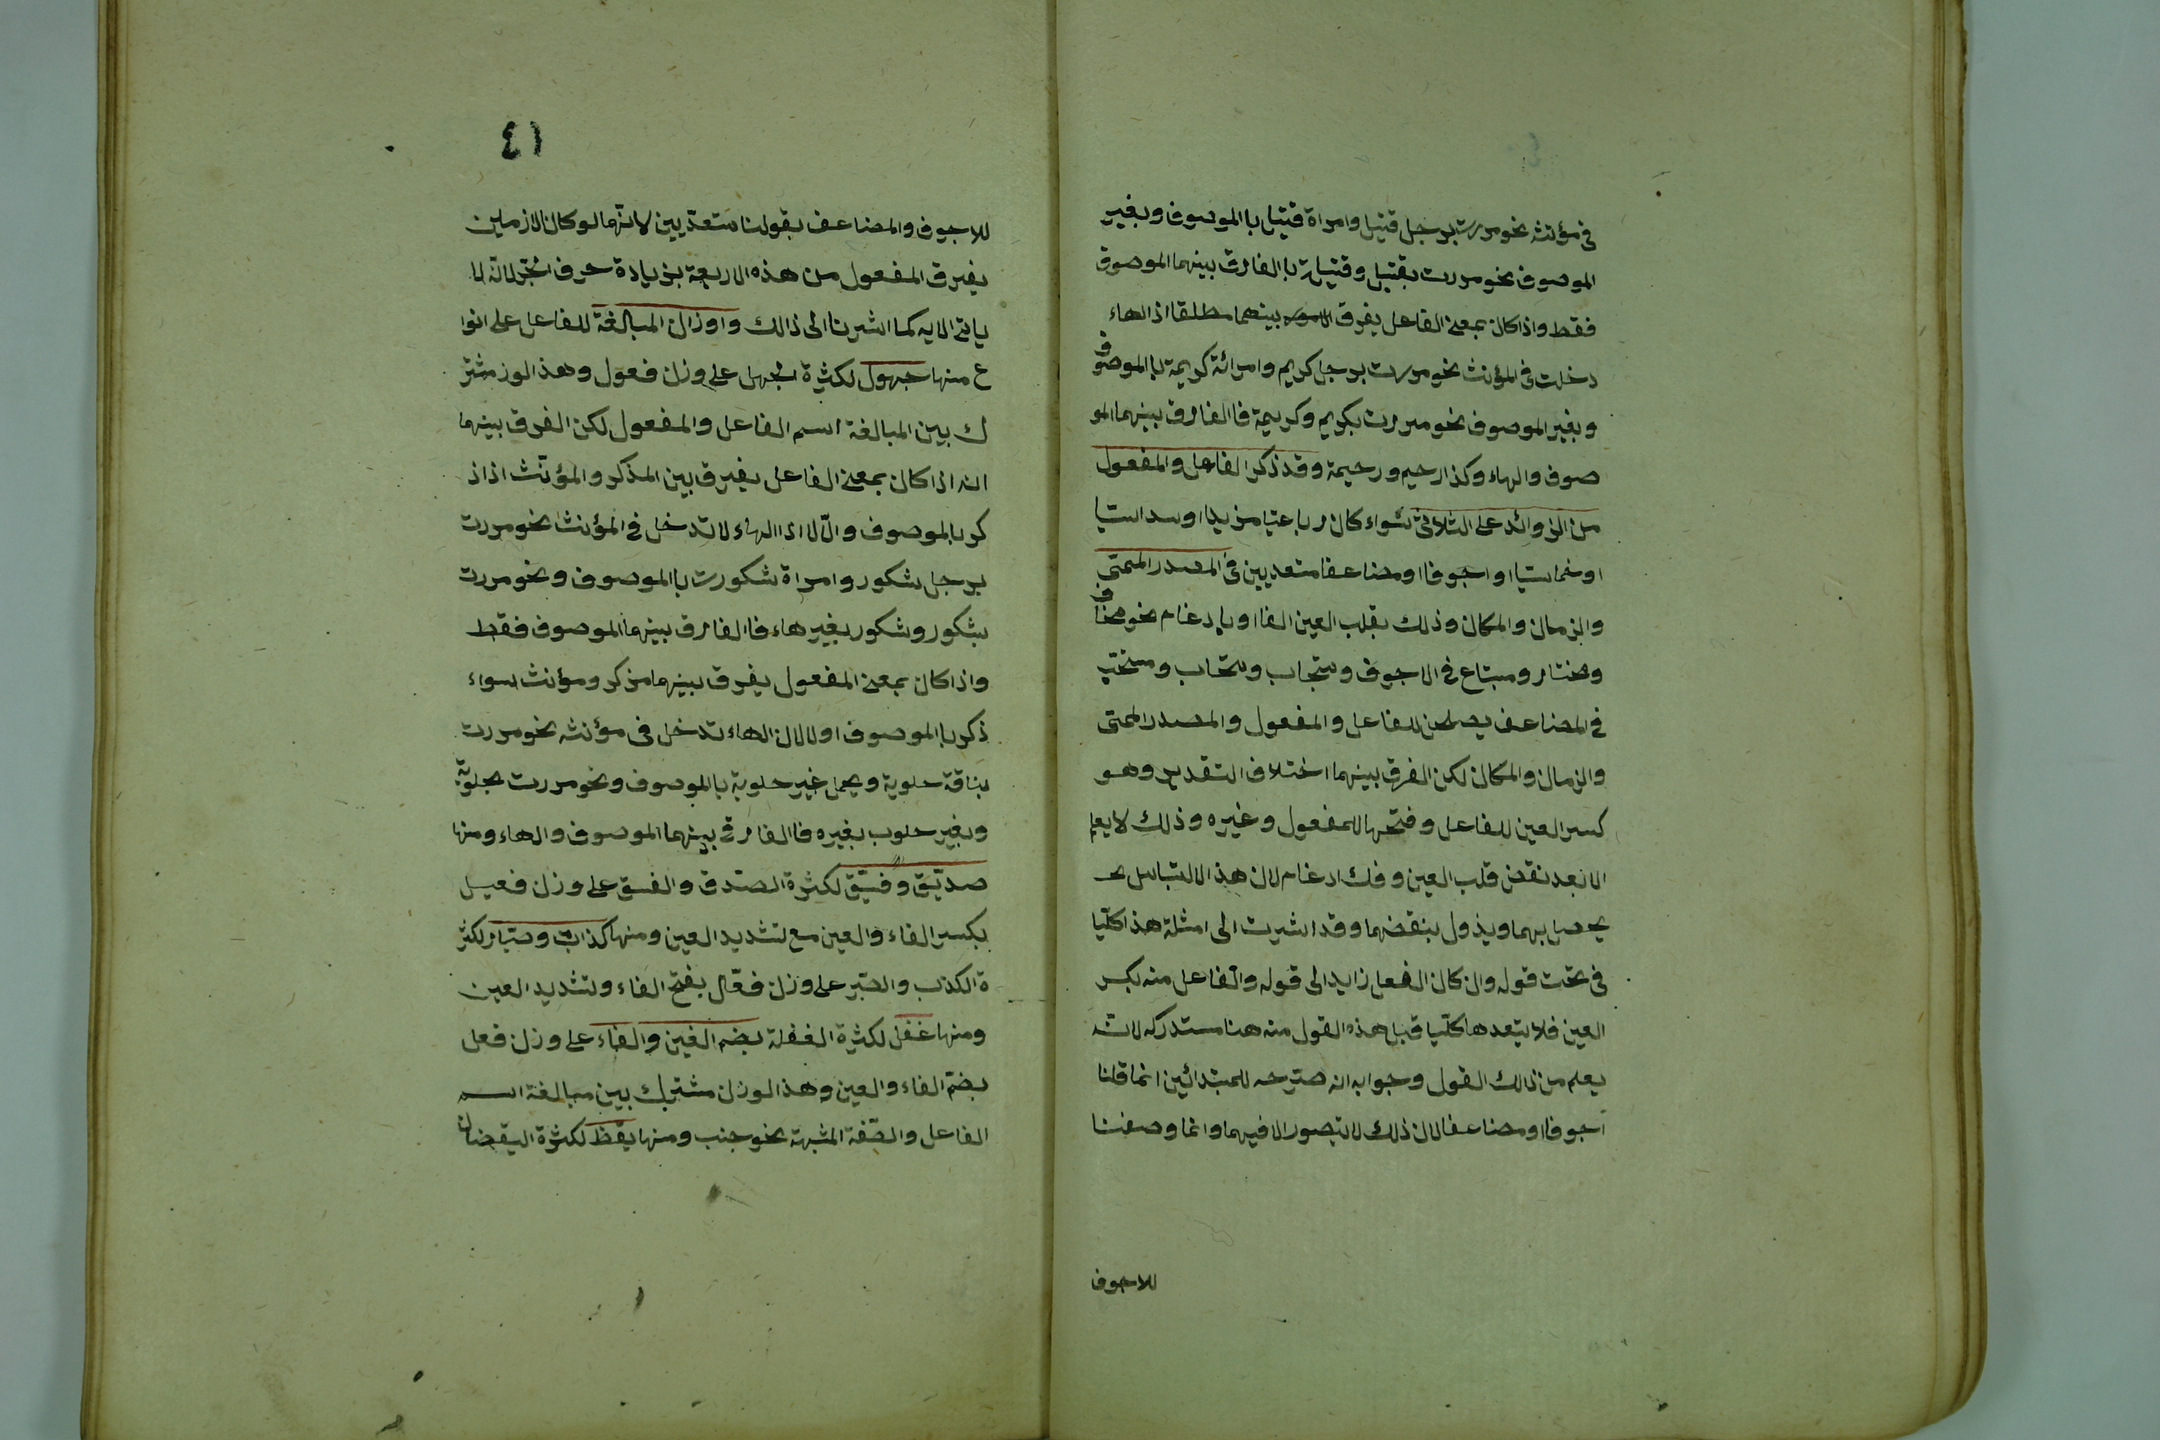 في مؤنثه نحو مررت برجل قتيل وامراة قتيل باالموصوف وبغير
الموصوف نحو مررت بقتيل وقتيلة باالفارق بينهما الموصوف
فقط واذا كان بمعنى الفاعل يفرق بينهما مطلقا اذ الهاء
دخلت في المؤنث نحو مررت برجل كريم وامرائة كريمة باالموصوف
وبغير الموصوف نحو مررت بكريم وكريمة فاالفارق بينهما المو
صوف والهاء وكذا رحيم ورحيمة وقد ذكر الفاعل والمفعول
من الزوائد على الثلاثي سواء كان رباعيا مزيدا او سداسيا
او خماسيا او اجوفا او مضاعفا متعديين في المصدر الميمى
والزمان والمكان وذلك بقلب العين الفا او بادغام نحو
ومختار ومبتاع في الاجوف ومنجاب ومتحاب
في المضاعف يصلحن للفاعل والمفعول والمصدر الميمى
والزمان والمكان لكن الفرق بينهما اختلاف التقدير وهو
كسر العين للفاعل وفتحها للمفعول وغيره وذلك لا يعلم
الا بعد نقض قلب العين وفك ادغام لان هذا الالتباس
يحصل بهما ويذول بنقضهما وقد اشرت الى امثلة هذا كليا
في تحت قوله وان كان الفعل زايد الى قوله والفاعل منه بكسر
العين فلا يتعدها كليا قبل هذه القول منه هنا مستدركه لانه
يعلم من ذالك القول وجوابه انه صرحه للمبتدائين انما قلنا
اجوفا او مضاعفا لان ذلك لا يتصور الا فيهما وانما وصفنا
للاجوف
٤١
للاجوف والمضاعف بقولنا متعديين لانهما لو كان لازمين
يفرق المفعول من هذه الاربعة بزيادة حرف الجر لانه لا
ياتى الا به كما اشرنا الى ذالك واوزان المبالغة للفاعل على انوا
ع منها جهول لكثرة الجهل على وزن فعول وهذ الوز مشتر
ك بين المبالغة اسم الفاعل والمفعول لكن الفرق بينهما
انه اذا كان بمعنى الفاعل يفرق بين المذكر والمؤنث اذ اذ
كر بالموصوف والا لا اذا الهاء لا تدخل في المؤنث نحو مررت
برجل شكور وامراة شكورت باالموصوف ونحو مررت
بشكور وشكور بغير هاء فاالفارق بينهما الموصوف فقط
واذا كان بمعنى المفعول يفرق بينهما مزكر ومؤنث سواء
ذكر باالموصوف اولا لان الهاء تدخل فى مؤنثه نحو مررت
بناقة حلوبة وبجمل غير حلوبة باالموصوف ونحو مررت بحلوبة
وبغير حلوب بغيره فاالفارق بينهما الموصوف والهاء ومنها
صديق وفسيق لكثرة الصدق والفسق على وزن فعيل
بكسر الفاء والعين مع تشديد العين ومنها كذاب وصبار لكثر
ة الكذب والصبر على وزن فعّال بفتح الفاء وتشديد العين
ومنها غفل لكثرة الغفلة بضم الغين والفاء على وزن فعل
بضم الفاء والعين وهذ الوزن مشترك بين مبالغة اسم
الفاعل والصّفة المشبهة نحو جنب ومنها يقظ لكثرة اليقضان